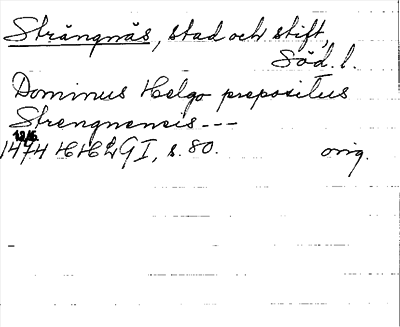 Strängnäs, stad och stift,
Söd. l.
Dominus Helgo prepositus
Strengnensis ---
13/5
1474 HH LG I, s. 80. orig.